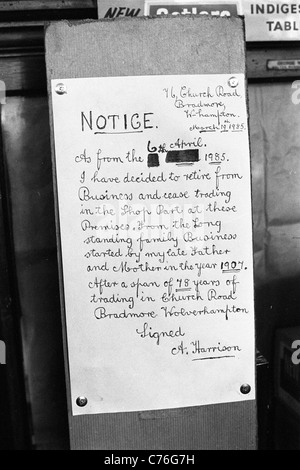 NEW
Setlers
INDIGES
TABLE
76, Church Road
Bradmore,
W-hampton.
March 19th 1985.
NOTICE.
6th April.
As from the 1985.
I have decided to retire from
Business and cease trading
in the Shop Part at these
Premises. From the Long
standing family Business
started by my late Father
and Mother in the year 1907.
After a span of 78 years of
trading in Church Road
Bradmore Wolverhampton
Signed
A. Harrison
alamy